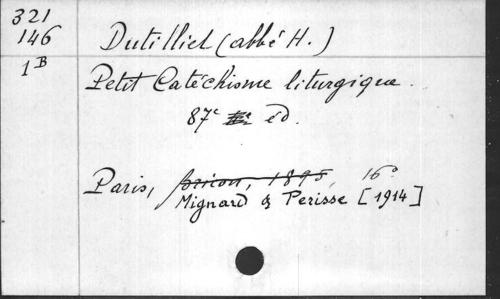 321
146
1B
Dutilliet (abbé H.)
Petit Catéchisme liturgique.
87e éd.
Paris, 1895, 16°
Mignard & Perisse [1914]